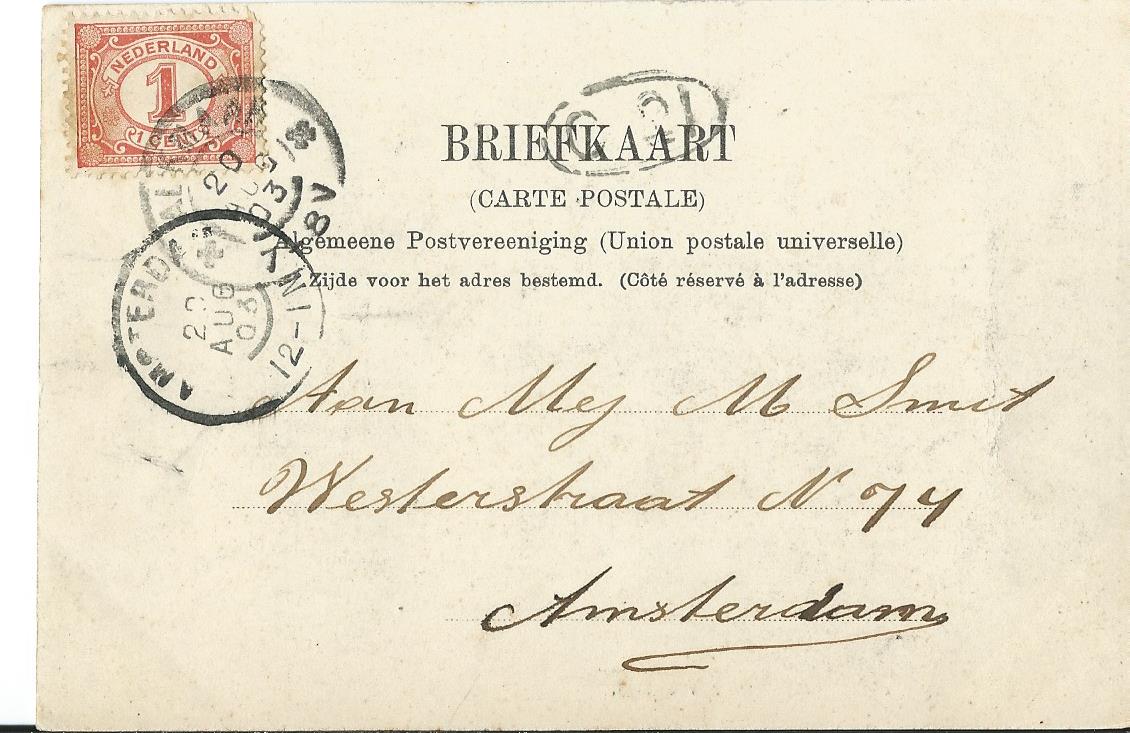 NEDERLAND
1
1 CENT
BRIEFKAART
(CARTE POSTALE)
Algemeene Postvereeniging (Union postale universelle)
Zijde voor het adres bestemd. (Côté réservé à l'adresse)
20
AUG
03
8V
AMSTERDAM
20
AUG
03
12-1N
Aan Mej M Smit
Westerstraat N 74
Amsterdam